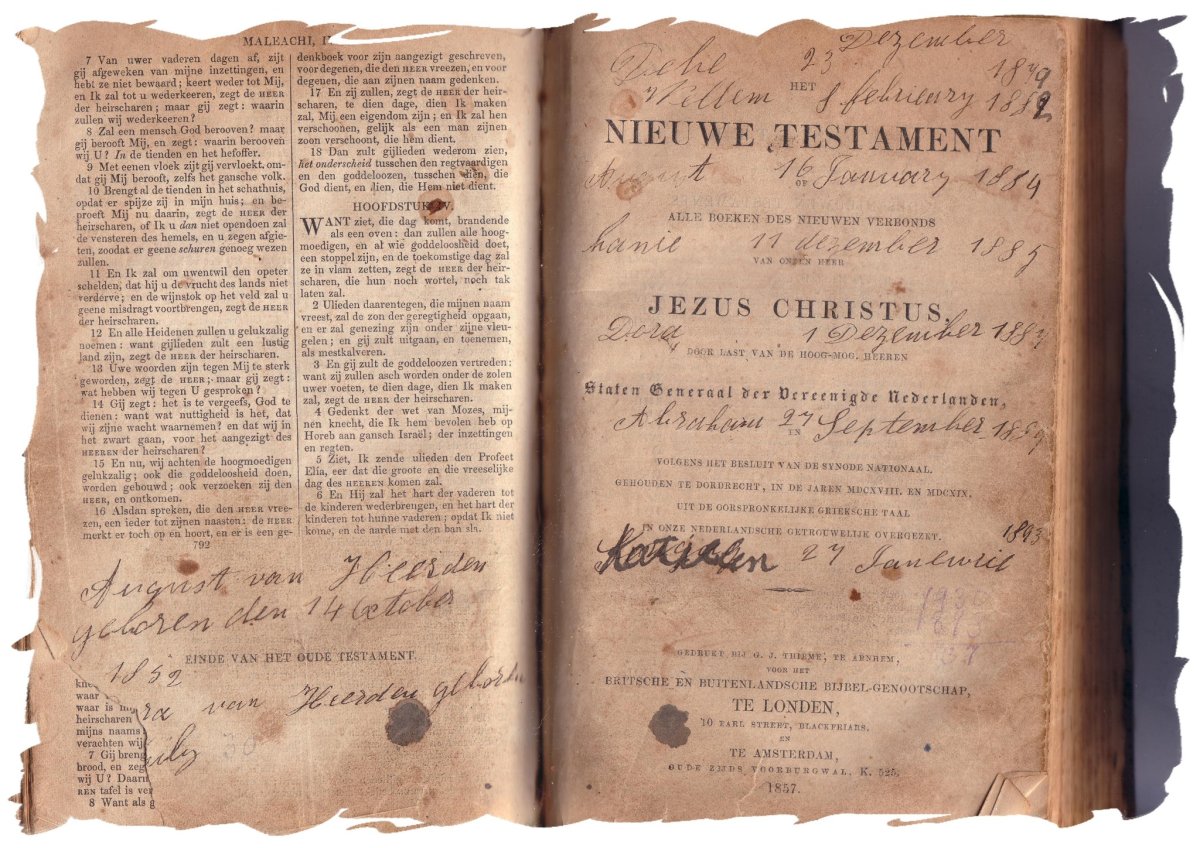 MALEACHI, I
7 Van uwer vaderen dagen af, zijt
gij afgeweken van mijne inzettingen, en
hebt ze niet bewaard; keert weder tot Mij,
en Ik zal tot u wederkeeren, zegt de HEER
der heirscharen; maar gij zegt: waarin
zullen wij wederkeeren?
8 Zal een mensch God berooven? maar
gij berooft Mij, en zegt: waarin berooven
wij U? In de tienden en het hefoffer.
9 Met eenen vloek zijt gij vervloekt, om-
dat gij Mij berooft, zelfs het gansche volk.
10 Brengt al de tienden in het schathuis,
opdat er spijze zij in mijn huis; en be-
proeft Mij nu daarin, zegt de HEER der
heirscharen, of Ik u dan niet opendoen zal
de vensteren des hemels, en u zegen afgie-
ten, zoodat er geene schuren genoeg wezen
zullen.
11 En Ik zal om uwentwil den opeter
schelden, dat hij u de vrucht des lands niet
verderve; en de wijnstok op het veld zal u
geene misdragt voortbrengen, zegt de HEER
der heirscharen.
12 En alle Heidenen zullen u gelukzalig
noemen: want gijlieden zult een lustig
land zijn, zegt de HEER der heirscharen.
13 Uwe woorden zijn tegen Mij te sterk
geworden, zegt de HEER; maar gij zegt:
wat hebben wij tegen U gesproken?
14 Gij zegt: het is te vergeefs, God te
dienen: want wat nuttigheid is het, dat
wij zijne wacht waarnemen? en dat wij in
het zwart gaan, voor het aangezigt des
HEEREN der heirscharen?
15 En nu, wij achten de hoogmoedigen
gelukzalig; ook die goddeloosheid doen,
worden gebouwd; ook verzoeken zij den
HEER, en ontkomen.
16 Alsdan spreken, die den HEER vree-
zen, een ieder tot zijnen naaste: de HEER
merkt er toch op en hoort, en er is een ge-
792
denkboek voor zijn aangezigt geschreven,
voor degenen, die den HEER vreezen, en voor
degenen, die aan zijnen naam gedenken.
17 En zij zullen, zegt de HEER der heir-
scharen, te dien dage, dien Ik maken
zal, Mij een eigendom zijn; en Ik zal hen
verschoonen, gelijk als een man zijnen
zoon verschoont, die hem dient.
18 Dan zult gijlieden wederom zien,
het onderscheid tusschen den regtvaardigen
en den goddeloozen, tusschen dien, die
God dient, en dien, die Hem niet dient.
HOOFDSTUK IV.
WANT ziet, die dag komt, brandende
als een oven: dan zullen alle hoog-
moedigen, en al wie goddeloosheid doet,
een stoppel zijn, en de toekomstige dag zal
ze in vlam zetten, zegt de HEER der heir-
scharen, die hun noch wortel, noch tak
laten zal.
2 Ulieden daarentegen, die mijnen naam
vreest, zal de zon der geregtigheid opgaan,
en er zal genezing zijn onder zijne vleu-
gelen; en gij zult uitgaan, en toenemen,
als mestkalveren.
3 En gij zult de goddeloozen vertreden:
want zij zullen asch worden onder de zolen
uwer voeten, te dien dage, dien Ik maken
zal, zegt de HEER der heirscharen.
4 Gedenkt der wet van Mozes, mij-
nen knecht, die Ik hem bevolen heb op
Horeb aan gansch Israël; der inzettingen
en regten.
5 Ziet, Ik zende ulieden den Profeet
Elía, eer dat die groote en die vreeselijke
dag des HEEREN komen zal.
6 En Hij zal het hart der vaderen tot
de kinderen wederbrengen, en het hart der
kinderen tot hunne vaderen; opdat Ik niet
kome, en de aarde met den ban sla.
August van Heerden
geboren den 14 October
1852
EINDE VAN HET OUDE TESTAMENT.
van Heerden
waar
waar is m
heirscharen
mijns naams
verachten wij
7 Gij breng
brood, en zeg
wij U? Daarn
REN tafel is ver
8 Want als g
23 Dezember 1879
HET
Willem 8 february 1882
NIEUWE TESTAMENT
August 16 January 1884
OF
ALLE BOEKEN DES NIEUWEN VERBONDS
hanie 11 dezember 1885
VAN ONZEN HEER
JEZUS CHRISTUS,
Dora 1 Dezember
DOOR LAST VAN DE HOOG-MOG. HEEREN
Staten Generaal der Vereenigde Nederlanden,
Abraham 27 September
IN
VOLGENS HET BESLUIT VAN DE SYNODE NATIONAAL.
GEHOUDEN TE DORDRECHT, IN DE JAREN MDCXVIII. EN MDCXIX,
UIT DE OORSPRONKELIJKE GRIEKSCHE TAAL
IN ONZE NEDERLANDSCHE GETROUWELIJK OVERGEZET.
1893
27 Janewrie
GEDRUKT BIJ G. J. THIEME, TE ARNHEM,
VOOR HET
BRITSCHE EN BUITENLANDSCHE BIJBEL-GENOOTSCHAP,
TE LONDEN,
10 EARL STREET, BLACKFRIARS,
EN
TE AMSTERDAM,
OUDE ZIJDS VOORBURGWAL, K. 525.
1857.